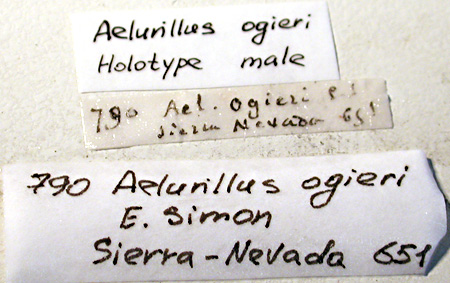 Aelurillus ogieri
Holotype male
790 Ael. ogieri E.S
Sierra Nevada 651
790 Aelurillus ogieri
E. Simon
Sierra-Nevada 651